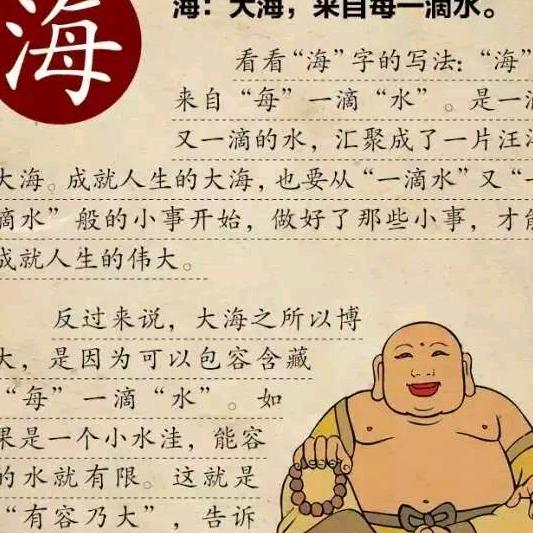 海
海：大海，来自每一滴水。
看看“海”字的写法：“海”
来自“每”一滴“水”。是一
又一滴的水，汇聚成了一片汪
大海。成就人生的大海，也要从“一滴水”又“一
滴水”般的小事开始，做好了那些小事，才能
成就人生的伟大。
反过来说，大海之所以博
大，是因为可以包容含藏
“每”一滴“水”。如
果是一个小水洼，能容
的水就有限。这就是
“有容乃大”，告诉